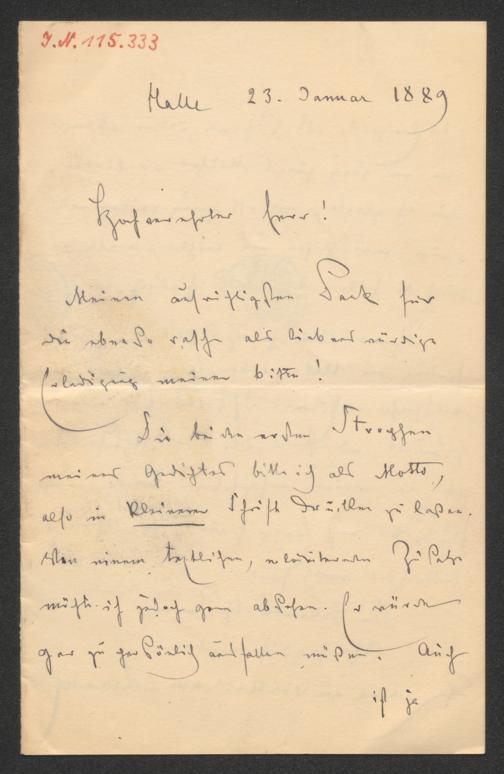 J.N. 115.333
Halle 23. Januar 1889
Hochverehrter Herr!
Meinen aufrichtigsten Dank für
die ebenso rasche als liebenswürdige
Erledigung meiner Bitte!
Die beiden ersten Strophen
meines Gedichtes bitte ich als Motto,
also in kleinerer Schrift drucken zu laßen.
Von einem textlichen, erläuternden Zusatze
möchte ich jedoch gern absehen. Er würde
gar zu persönlich ausfallen müßen. Auch
ist ja